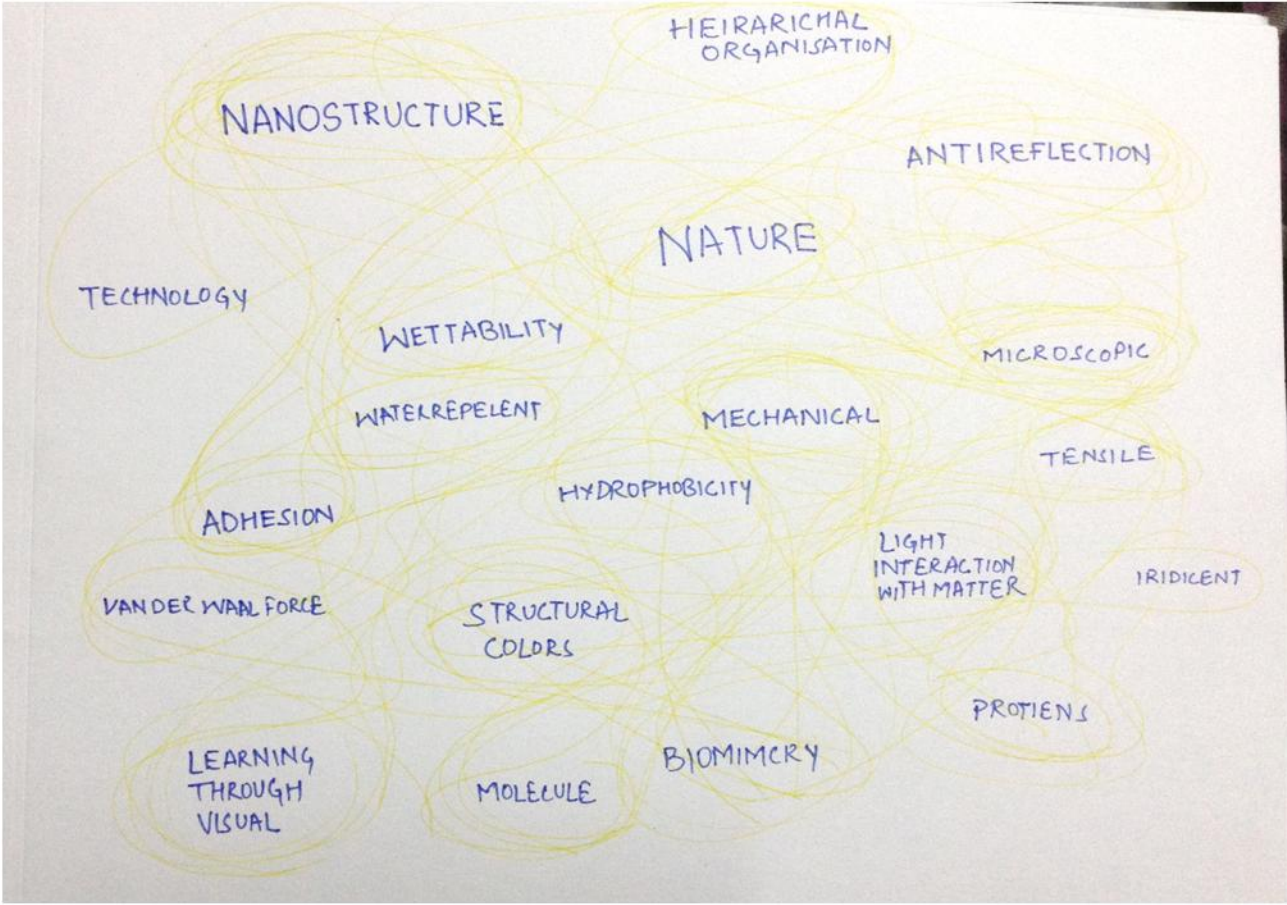 HEIRARICHAL
ORGANISATION
NANOSTRUCTURE
ANTIREFLECTION
NATURE
TECHNOLOGY
WETTABILITY
MICROSCOPIC
WATERREPELENT
MECHANICAL
TENSILE
HYDROPHOBICITY
ADHESION
LIGHT
INTERACTION
WITH MATTER
IRIDICENT
VAN DER WAAL FORCE
STRUCTURAL
COLORS
PROTIENS
LEARNING
THROUGH
VISUAL
MOLECULE
BIOMIMCRY